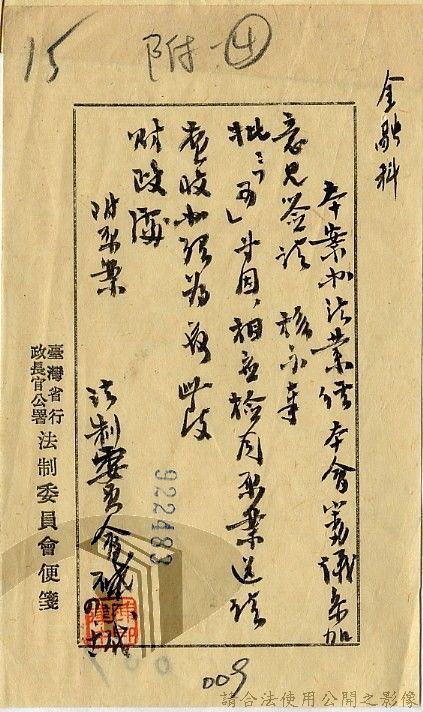 15
附
④
金融科
本案办法業經本會審議參加
意見簽請 核示奉
批：「可」等因，相應檢同原案送請
查收办理為荷 此致
財政處
附原案
法制委員會啟
922483
臺灣省行政長官公署 法制委員會便箋
009
請合法使用公開之影像